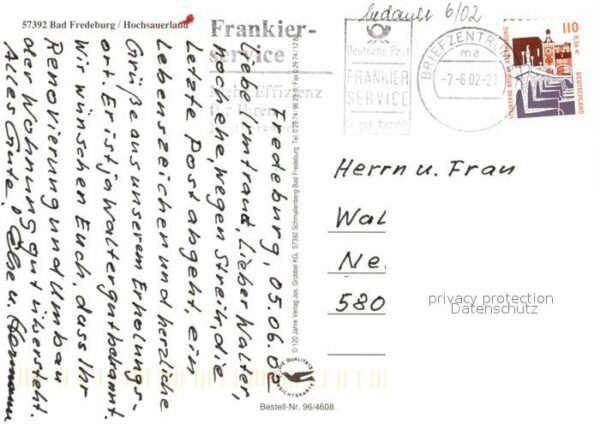 57392 Bad Fredeburg / Hochsauerland
bedauer 6/02
Frankier-
service
High Effizienz
für Ihren
Deutsche Post
FRANKIER
SERVICE
BRIEFZENTRUM
ma
-7-6.02-21
110
0,56 €
DEUTSCHLAND
Fredeburg, 05.06.02
Liebe Irmtraud, Lieber Walter,
noch ehe, wegen Streik, die
Letzte Post abgeht, ein
Lebenszeichen und herzliche
Grüße aus unserem Erholungs-
ort. Er ist ja Walter gut bekannt.
Wir wünschen Euch, dass Ihr
Renovierung und Umbau
der Wohnung gut übersteht.
Alles Gute, Else u. Hermann
© 120 Jahre Verlag Jos. Grobbel KG, 57392 Schmallenberg Bad Fredeburg, Tel. 0 29 74 / 96 29
Herrn u. Frau
Wal
Ne
580
privacy protection
Datenschutz
DIE QUALITÄTS
ANSICHTSKARTE
Bestell-Nr. 96/4608